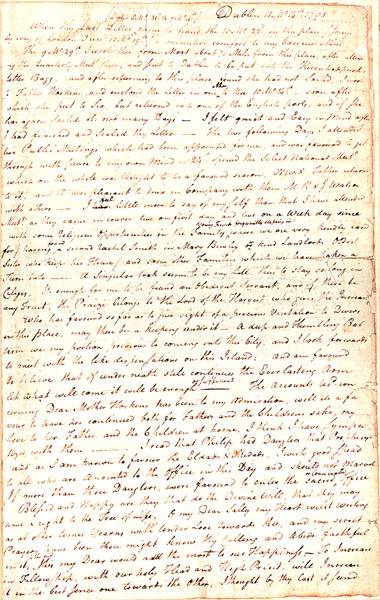 Dublin 11. Mo. 14th 1795
When thy Last Letter came to hand the 10 Mo. 22d in this place
by way of London I was
The 9 Mo. 29th I wrote thee from Moat about 7 Miles from this place, after
the Quarterly Meeting there, and put
Letter Bagg and after returning to this place found she had not Sailed. I wrote
Father Hoskens, and enclosed the Letter in one to thee 10 Mo. 14th soon after
which she put to Sea, but returned into one of the English ports, and if she
has again Sailed it's not many Days — I felt quiet and Easy in Mind after
I had finished and Sealed thy Letter — The two following Days I attended
two Public Meetings which had been appointed for me, and was favoured to get
through with peace to my own Mind — 24th opened the Select National Meeting
which on the whole was thought to be a favoured season.
to it, and it was pleasant to be in Company with them
with others — I have little more to say of my self than that I have attended
Meetings as they came in course two on first day and two on a Week day since
with some Religious Opportunities in the Family, where we are very kindly cared
for, having found a second Rachel Smith in Mary Bewley our kind Landlords Oldest
Sister who keeps his House and some other Families which we have taken a
Turn into — A singular task seems to be my Lott, thus to stay so long in
Cities. It enough for me to be found an Obedient Servant, and if there be
any Fruit, the Praise belongs to the Lord of the Harvest who gives the Increase
who has favoured so far as to give sight of a precious Visitation to Divers
in this place, may there be a keeping under it — A deep and Humbling Bap
tism was my portion previous to coming into this City, and I look forwards
to meet with the like dispensations on this Island; And am favoured
to believe that if underneath still continues the Everlasting Arm
let what will come it will be enough — The Accounts
cerning Dear Mother Hoskens has been to my admiration, well its a fa
vour to have her continued both for Father and the Childrens sake, my
love to her Father, and the Children at home, I think I have Sympa
thized with them — I read that Philip had Daughters that Prophecy'd
and as I am known to favour the Elders & Elderesses, I wish good speed
to all who are Anointed to the Office in this Day and should not Marvel
if more than three Daughters, were favoured to enter the sacred place
Blessed and Happy are they that do the Divine Will, that they may
have a right to the Tree of Life. O my Dear Sally my Heart whilst writing
as at other times Yearns with tender Love towards thee, and my secret
Prayers have been thou might know thy Calling and Abide faithful
in it, this my Dear would add the most to our Happiness — To Increase
in Fellowship, with our holy Head and High Priest, will Increase
it in the best sence one towards the other, I thought by thy last I found